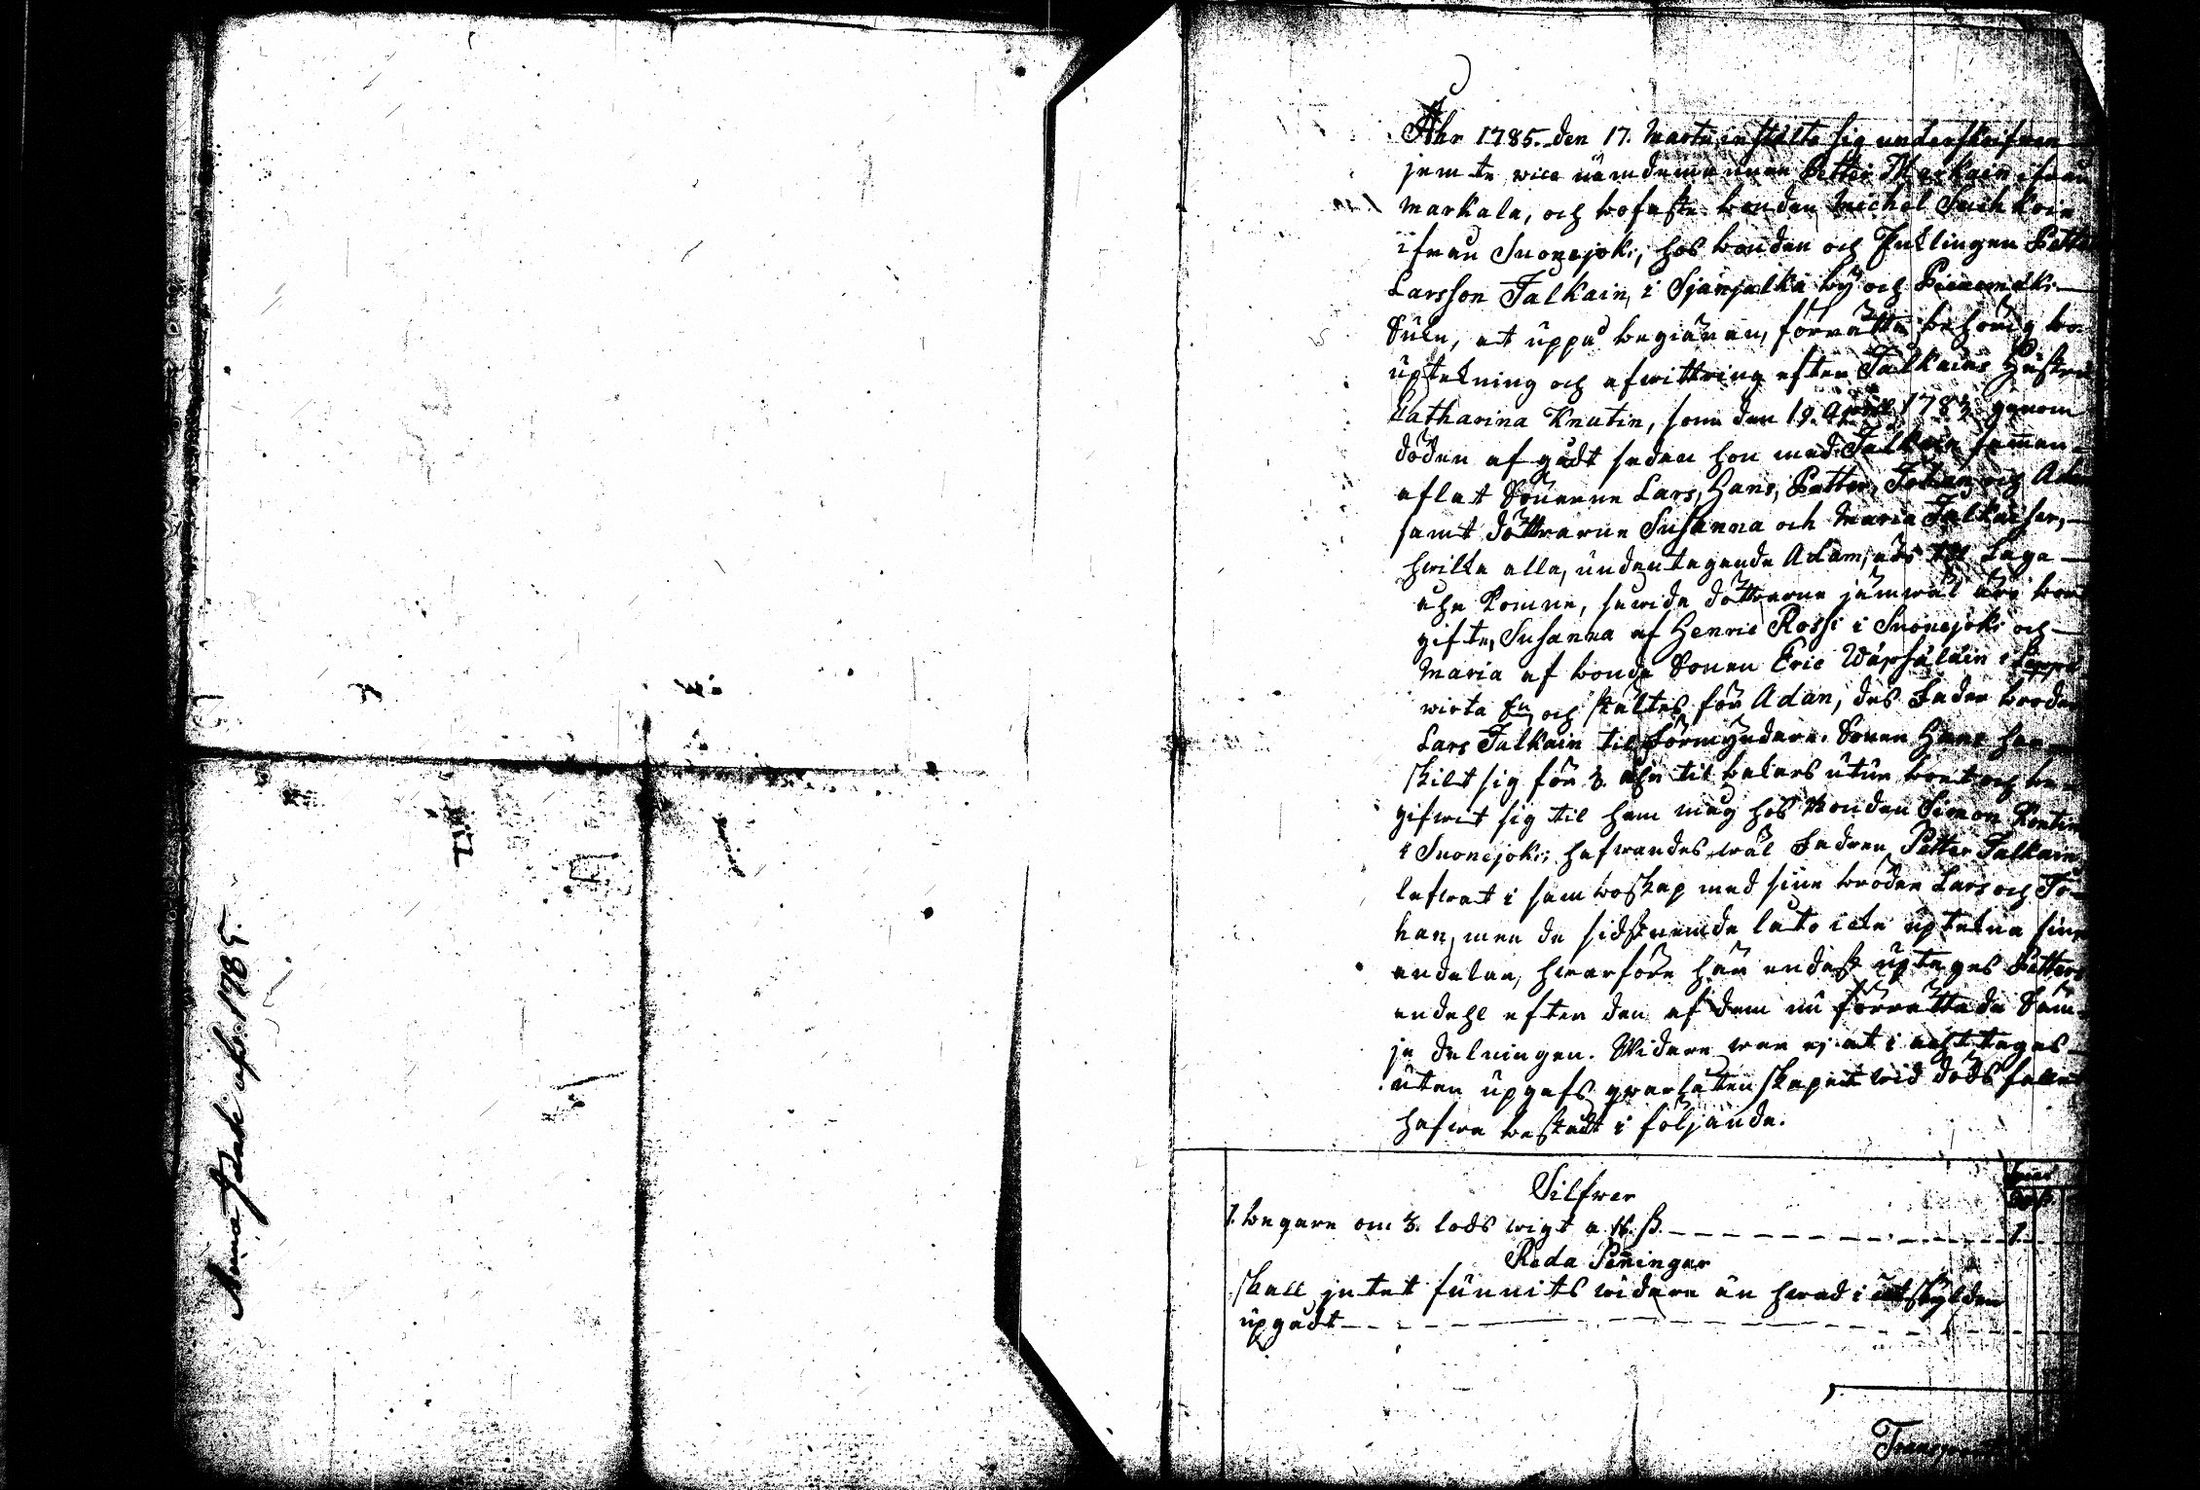 Åhr 1785. den 17. Martii instälte sig underskrifven
jemte vice nämdemannen Petter Markain ifrån
Markala, och bofaste bonden Michel Suihkoin
ifrån Suonejoki, hos bonden och Enklingen Petter
Larsson Jalkain, i Sjänjälkä by och Piexemäki
Sukn, at uppå begiäran, förrätta behörig bo
uptekning och afwittring efter Jalkains Hustru
Catharina Knutin, som den 19. April 1783 genom
döden afgådt sedan hon med Jalkain samman
aflat Sönerne Lars, Hans, Petter, Johan och Adam
samt döttrarne Susanna och Maria Jalkaiser,
hwilka alla, undantagande Adam, äro til Laga
ahr komne, sawida döttrarne jämwäl äro bort
gifte, Susanna af Henric Rossi i Suonejoki och
Maria af bonde Sonen Eric Wäisäläin i
wirta och stältes för Adam, des Fader broder
Lars Jalkain til Förmyndare. Sonen Hans har
skilt sig för 3. ahr til bakars utur boet och be
gifwit sig til hemmag hos bonden Simon
i Suonejoki; hafwandes wäl Fadren Petter Jalkain
lefwat i sam boskap med sine bröder Lars och Jo
han, men de sidstnemde lato icke uptekna sine
andelar, hwarföre här endast uptages Petters
andehl efter den af dem nu förrättade Säm
je delningen. Widare war ej at i acht tagas
utan upgafs qwarlåtenskapen wid dödsfallet
hafwa bestådt i följande.
Silfwer
1. begare om 3. lods wigt a 16. ß. 1.
Reda Penningar
skall intet funnits widare än hwad i utskylden
upgådt
Transport
1785.